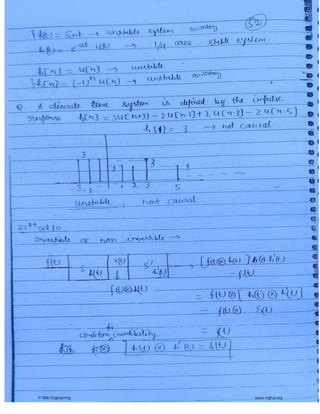 52
h(t) = Sint → unstable system
h(t) = e^-at u(t) → 1/a area stable system
h[n] = u[n] → unstable
h[n] = (-1)^n u[n] → unstable
Q. A discrete time system is defined by the impulse
response h[n] = 3u[n+3] - 2u[n-1] + 2u[n-3] - 2u[n-5]
h[-1] = 3 → not causal
3
3
1
1
-3 -2 1 2 3 5
unstable, not causal
21st oct 10
Invertible or non invertible →
f(t) S h(t) r(t) S' h'(t) → [f(t) ⊗ h(t)] ⊗ h'(t)
= f(t)
f(t) ⊗ h(t)
= f(t) ⊗ [h(t) ⊗ h'(t)]
= f(t) ⊗ δ(t)
= f(t)
Condition for invertibility
h(t) ⊗ h'(t) = δ(t)
© Wiki Engineering www.raghul.org